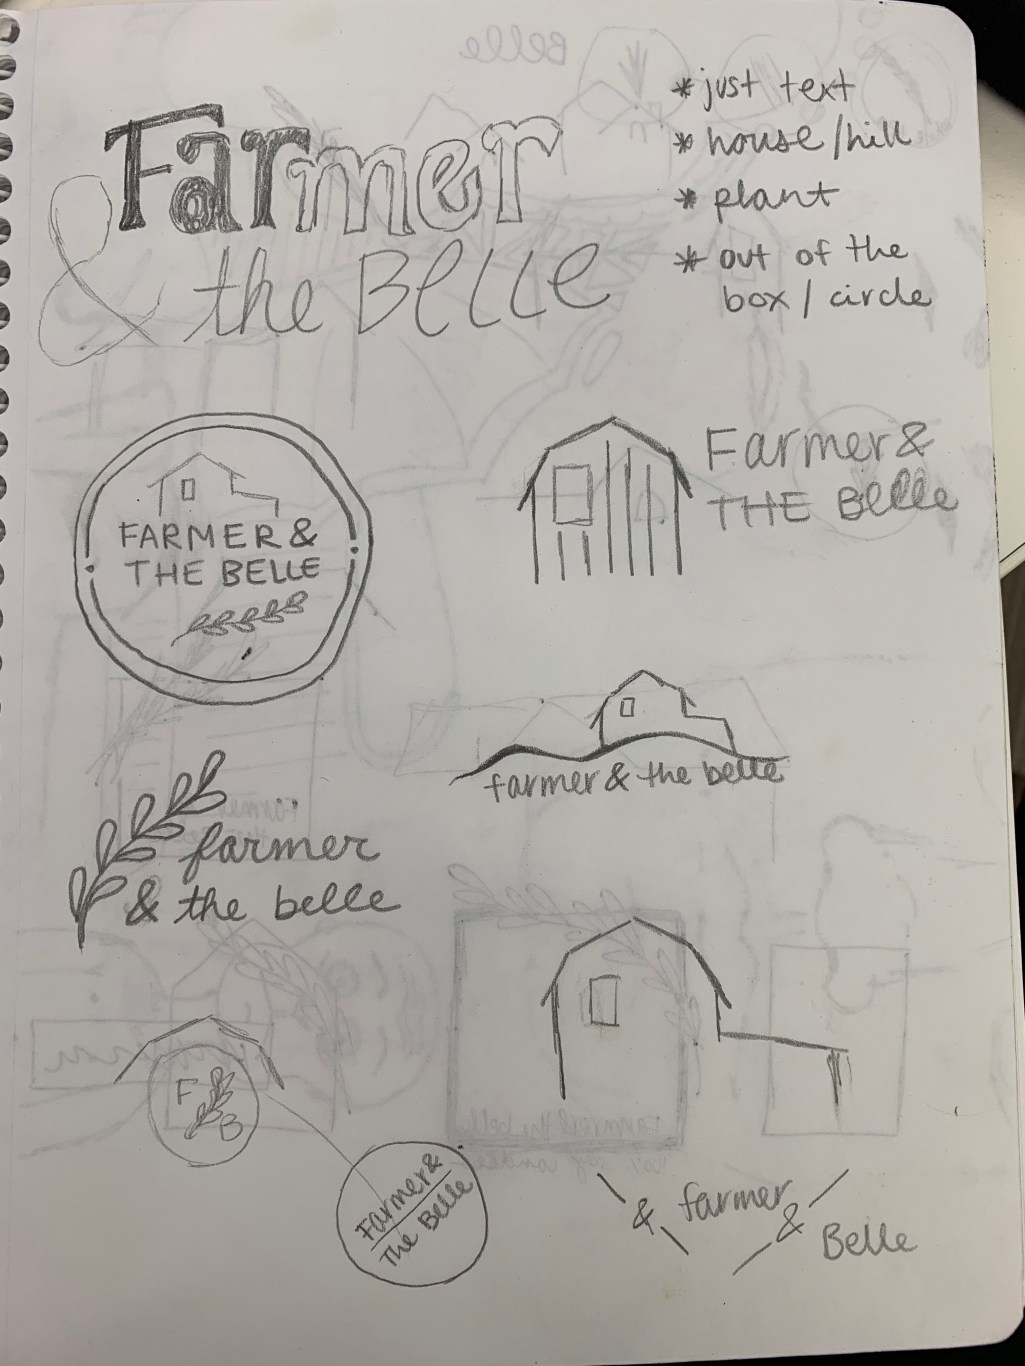 Farmer
& the Belle
* just text
* house/hill
* plant
* out of the
box / circle
FARMER &
THE BELLE
Farmer &
THE Belle
farmer & the belle
farmer
& the belle
F
B
Farmer &
The Belle
& farmer
& Belle
Belle